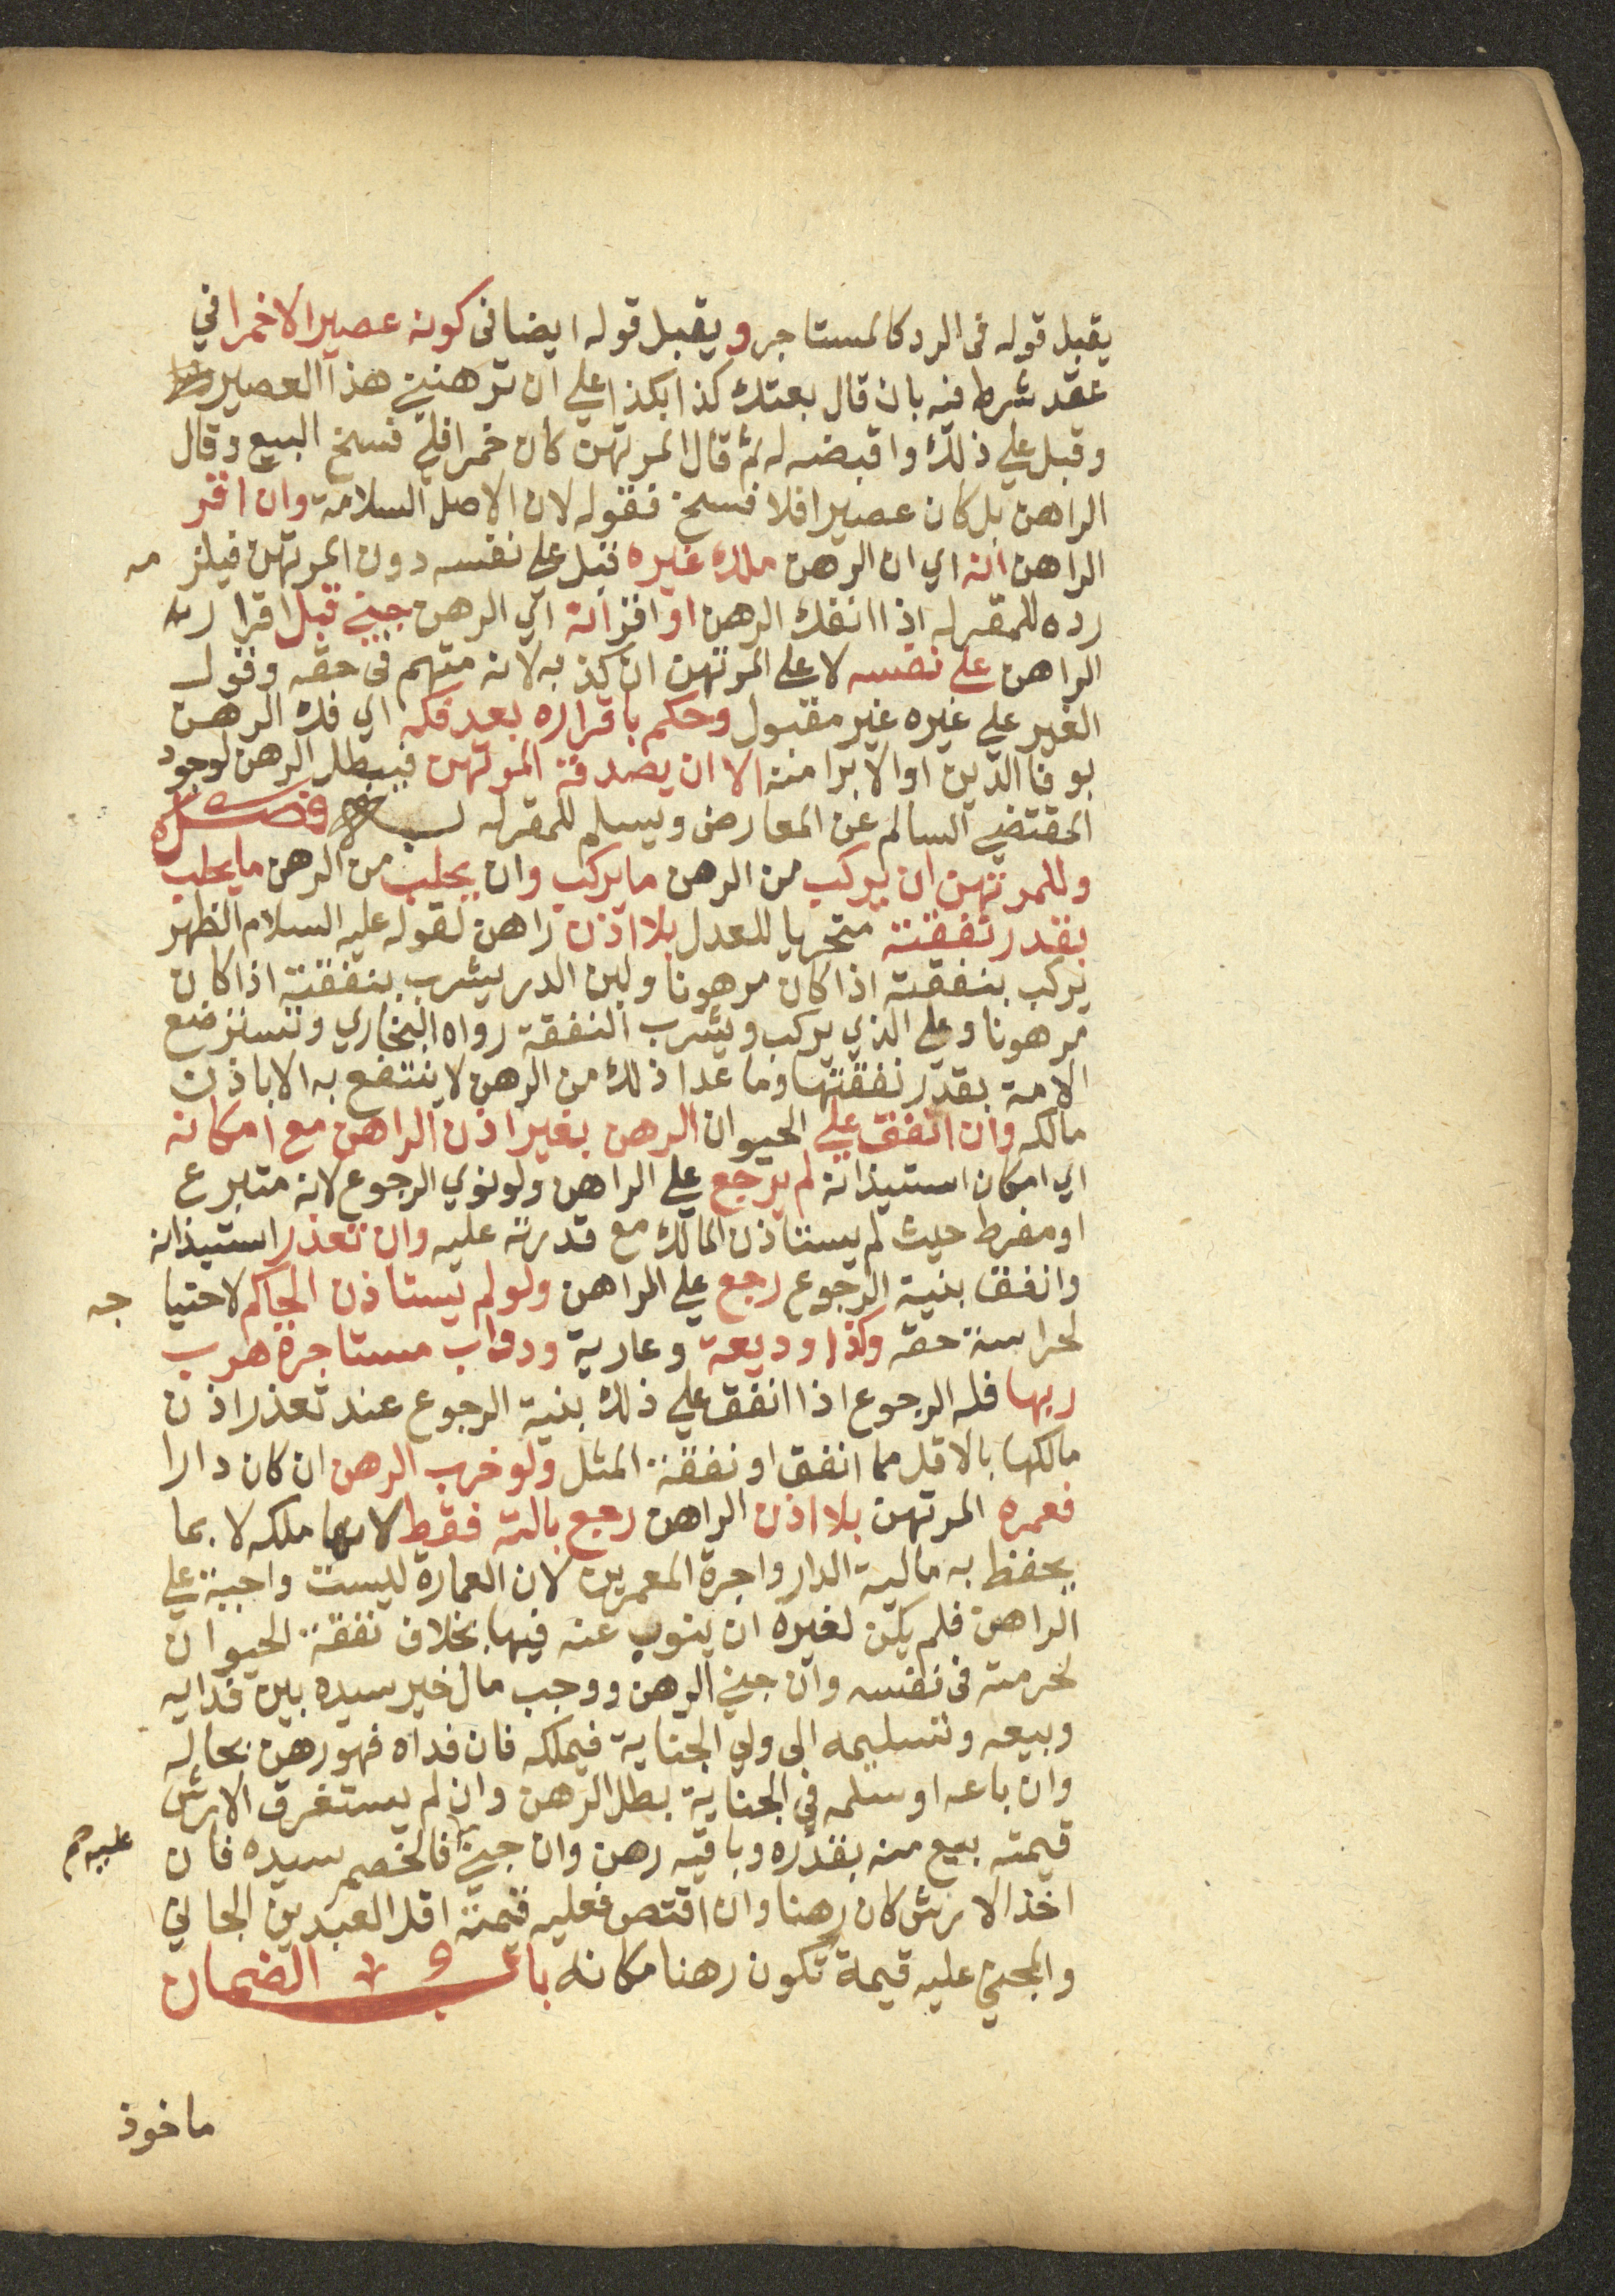 يقبل قوله فى الرد كالمستاجر ويقبل قوله ايضا فى كونه عصيرا لا خمرا في
عقد شرط فيه بان قال بعتك كذا بكذا علي ان ترهنني هذا العصير
وقبل علي ذلك واقبضه له ثم قال المرتهن كان خمرا فلي فسخ البيع وقال
الراهن بل كان عصيرا فلا فسخ فقوله لان الاصل السلامة وان اقر
الراهن انه اي ان الرهن ملك غيره قبل علي نفسه دون المرتهن فيلز مه
رده للمقر له اذا انفك الرهن او اقر انه اي الرهن جني قبل اقرار
الراهن علي نفسه لا علي المرتهن ان كذبه لانه متهم فى حقه وقول
الغير علي غيره غير مقبول وحكم باقراره بعد فكه اي فك الرهن
بوفا الدين او الابرا منه الا ان يصدقه المرتهن فيبطل الرهن لوجود
المقتضي السالم عن المعارض ويسلم للمقر له فصل
وللمرتهن ان يركب من الرهن ما يركب وان يحلب من الرهن ما يحلب
بقدر نفقته متحريا للعدل بلا اذن راهن لقوله عليه السلام الظهر
يركب بنفقته اذا كان مرهونا ولبن الدر يشرب بنفقته اذا كان
مرهونا وعلي الذي يركب ويشرب النفقة رواه البخاري وتسترضع
الامة بقدر نفقتها وما عدا ذلك من الرهن لا ينتفع به الا باذن
مالكه وان انفق علي الحيوان الرهن بغير اذن الراهن مع امكانه
اي امكان استيذانه لم يرجع علي الراهن ولو نوي الرجوع لانه متبرع
او مفرط حيث لم يستاذن المالك مع قدرته عليه وان تعذر استيذانه
وانفق بنية الرجوع رجع علي الراهن ولو لم يستاذن الحاكم لاحتيا جه
لحراسة حقه وكذا وديعة وعارية ودواب مستاجرة هرب
ربها فله الرجوع اذا انفق علي ذلك بنية الرجوع عند تعذر اذن
مالكها بالاقل مما انفق او نفقة المثل ولو خرب الرهن ان كان دارا
فعمره المرتهن بلا اذن الراهن رجع بالته فقط لانها ملكه لا بما
يحفظ به مالية الدار واجرة المعمرين لان العمارة ليست واجبة علي
الراهن فلم يكن لغيره ان ينوب عنه فيها بخلاف نفقة الحيوان
لحرمته فى نفسه وان جني الرهن ووجب مال خير سيده بين فدايه
وبيعه وتسليمه الى ولي الجناية فيملكه فان فداه فهو رهن بحاله
وان باعه او سلمه في الجناية بطل الرهن وان لم يستغرق الارش
قيمته بيع منه بقدره وباقيه رهن وان جني عليه فالخصم سيده فان
اخذ الارش كان رهنا وان اقتص فعليه قيمة اقل العبدين الجاني
والمجني عليه قيمة تكون رهنا مكانه باب الضمان
ماخوذ